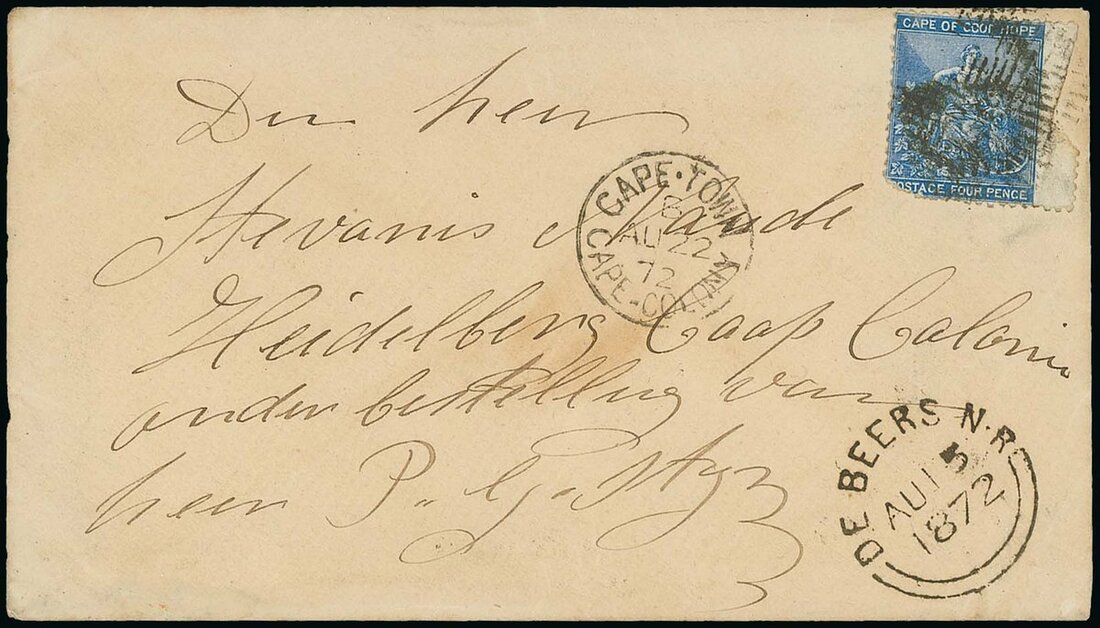 CAPE OF GOOD HOPE
POSTAGE FOUR PENCE
Den heer
Stevanis Maude
Heidelberg Caap Calonie
onder bestelling van
heer P. G. Styn
CAPE·TOWN
B
AU 22
72
CAPE-COLONY
DE BEERS N.R.
AU 15
1872